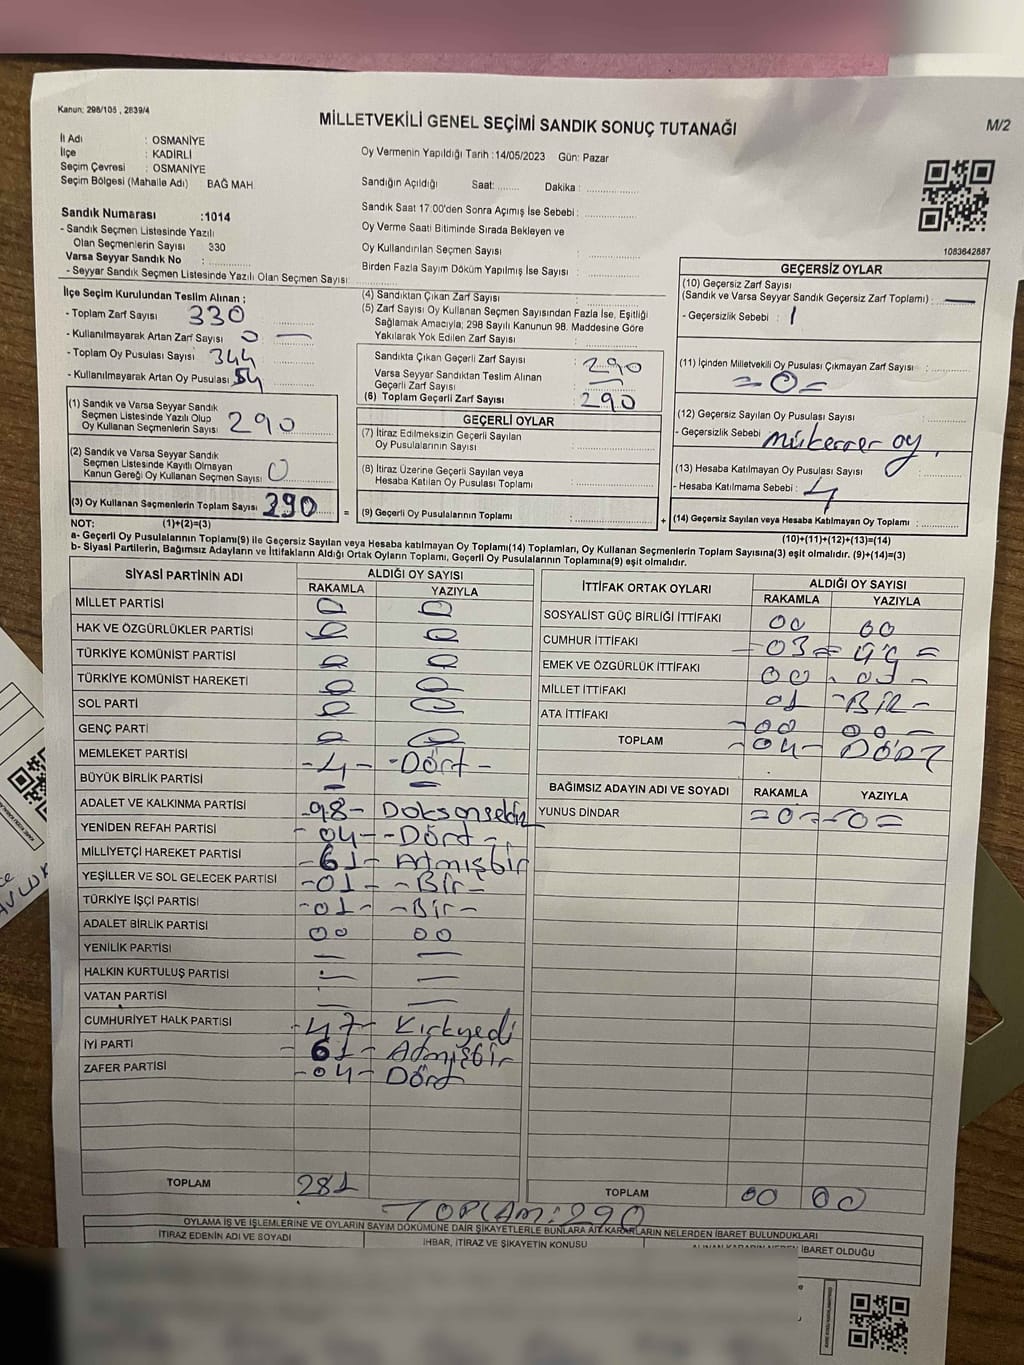 Kanun: 298/105 , 2839/4
MİLLETVEKİLİ GENEL SEÇİMİ SANDIK SONUÇ TUTANAĞI
M/2
İl Adı : OSMANİYE
İlçe : KADİRLİ
Seçim Çevresi : OSMANİYE
Seçim Bölgesi (Mahalle Adı) BAĞ MAH.
Sandık Numarası :1014
- Sandık Seçmen Listesinde Yazılı
Olan Seçmenlerin Sayısı 330
Varsa Seyyar Sandık No :
- Seyyar Sandık Seçmen Listesinde Yazılı Olan Seçmen Sayısı
Oy Vermenin Yapıldığı Tarih :14/05/2023 Gün: Pazar
Sandığın Açıldığı Saat: ....... Dakika : ..............
Sandık Saat 17:00'den Sonra Açımış İse Sebebi : ..............
Oy Verme Saati Bitiminde Sırada Bekleyen ve
Oy Kullandırılan Seçmen Sayısı : ..............
Birden Fazla Sayım Döküm Yapılmış İse Sayısı : ..............
1083642887
İlçe Seçim Kurulundan Teslim Alınan ;
- Toplam Zarf Sayısı 330
- Kullanılmayarak Artan Zarf Sayısı 0 —
- Toplam Oy Pusulası Sayısı 344
- Kullanılmayarak Artan Oy Pusulası 54
(1) Sandık ve Varsa Seyyar Sandık
Seçmen Listesinde Yazılı Olup
Oy Kullanan Seçmenlerin Sayısı 290
(2) Sandık ve Varsa Seyyar Sandık
Seçmen Listesinde Kayıtlı Olmayan
Kanun Gereği Oy Kullanan Seçmen Sayısı : 0
(3) Oy Kullanan Seçmenlerin Toplam Sayısı 290
(1)+(2)=(3)
(4) Sandıktan Çıkan Zarf Sayısı :
(5) Zarf Sayısı Oy Kullanan Seçmen Sayısından Fazla İse, Eşitliği
Sağlamak Amacıyla; 298 Sayılı Kanunun 98. Maddesine Göre
Yakılarak Yok Edilen Zarf Sayısı :
Sandıkta Çıkan Geçerli Zarf Sayısı : 290
Varsa Seyyar Sandıktan Teslim Alınan
Geçerli Zarf Sayısı : —
(6) Toplam Geçerli Zarf Sayısı : 290
GEÇERLİ OYLAR
(7) İtiraz Edilmeksizin Geçerli Sayılan
Oy Pusulalarının Sayısı :
(8) İtiraz Üzerine Geçerli Sayılan veya
Hesaba Katılan Oy Pusulası Toplamı :
= (9) Geçerli Oy Pusulalarının Toplamı : +
GEÇERSİZ OYLAR
(10) Geçersiz Zarf Sayısı
(Sandık ve Varsa Seyyar Sandık Geçersiz Zarf Toplamı) : —
- Geçersizlik Sebebi : 1
(11) İçinden Milletvekili Oy Pusulası Çıkmayan Zarf Sayısı :
= 0 =
(12) Geçersiz Sayılan Oy Pusulası Sayısı :
- Geçersizlik Sebebi mükerrer oy.
(13) Hesaba Katılmayan Oy Pusulası Sayısı :
- Hesaba Katılmama Sebebi : 4
(14) Geçersiz Sayılan veya Hesaba Katılmayan Oy Toplamı :
(10)+(11)+(12)+(13)=(14)
NOT:
a- Geçerli Oy Pusulalarının Toplamı(9) ile Geçersiz Sayılan veya Hesaba katılmayan Oy Toplamı(14) Toplamları, Oy Kullanan Seçmenlerin Toplam Sayısına(3) eşit olmalıdır. (9)+(14)=(3)
b- Siyasi Partilerin, Bağımsız Adayların ve İttifakların Aldığı Ortak Oyların Toplamı, Geçerli Oy Pusulalarının Toplamına(9) eşit olmalıdır.
SİYASİ PARTİNİN ADI ALDIĞI OY SAYISI
RAKAMLA YAZIYLA
MİLLET PARTİSİ 0 0
HAK VE ÖZGÜRLÜKLER PARTİSİ 0 0
TÜRKİYE KOMÜNİST PARTİSİ 0 0
TÜRKİYE KOMÜNİST HAREKETİ 0 0
SOL PARTİ 0 0
GENÇ PARTİ 0 0
MEMLEKET PARTİSİ -4- -Dört-
BÜYÜK BİRLİK PARTİSİ — —
ADALET VE KALKINMA PARTİSİ -98- Doksansekiz
YENİDEN REFAH PARTİSİ -04- -Dört-
MİLLİYETÇİ HAREKET PARTİSİ -61- Atmışbir
YEŞİLLER VE SOL GELECEK PARTİSİ -01- -Bir-
TÜRKİYE İŞÇİ PARTİSİ -01- -Bir-
ADALET BİRLİK PARTİSİ 00 00
YENİLİK PARTİSİ — —
HALKIN KURTULUŞ PARTİSİ — —
VATAN PARTİSİ — —
CUMHURİYET HALK PARTİSİ -47- Kırkyedi
İYİ PARTİ -61- Atmışbir
ZAFER PARTİSİ -04- Dört
TOPLAM 281
İTTİFAK ORTAK OYLARI ALDIĞI OY SAYISI
RAKAMLA YAZIYLA
SOSYALİST GÜÇ BİRLİĞİ İTTİFAKI 00 00
CUMHUR İTTİFAKI -03= Üç =
EMEK VE ÖZGÜRLÜK İTTİFAKI 00
MİLLET İTTİFAKI 01 -BİR-
ATA İTTİFAKI -00 00 -
TOPLAM -04- DÖRT
BAĞIMSIZ ADAYIN ADI VE SOYADI RAKAMLA YAZIYLA
YUNUS DİNDAR =0= =0=
TOPLAM 00 00
TOPLAM: 290
OYLAMA İŞ VE İŞLEMLERİNE VE OYLARIN SAYIM DÖKÜMÜNE DAİR ŞİKAYETLERLE BUNLARA AİT KARARLARIN NELERDEN İBARET BULUNDUKLARI
İTİRAZ EDENİN ADI VE SOYADI İHBAR, İTİRAZ VE ŞİKAYETİN KONUSU İBARET OLDUĞU